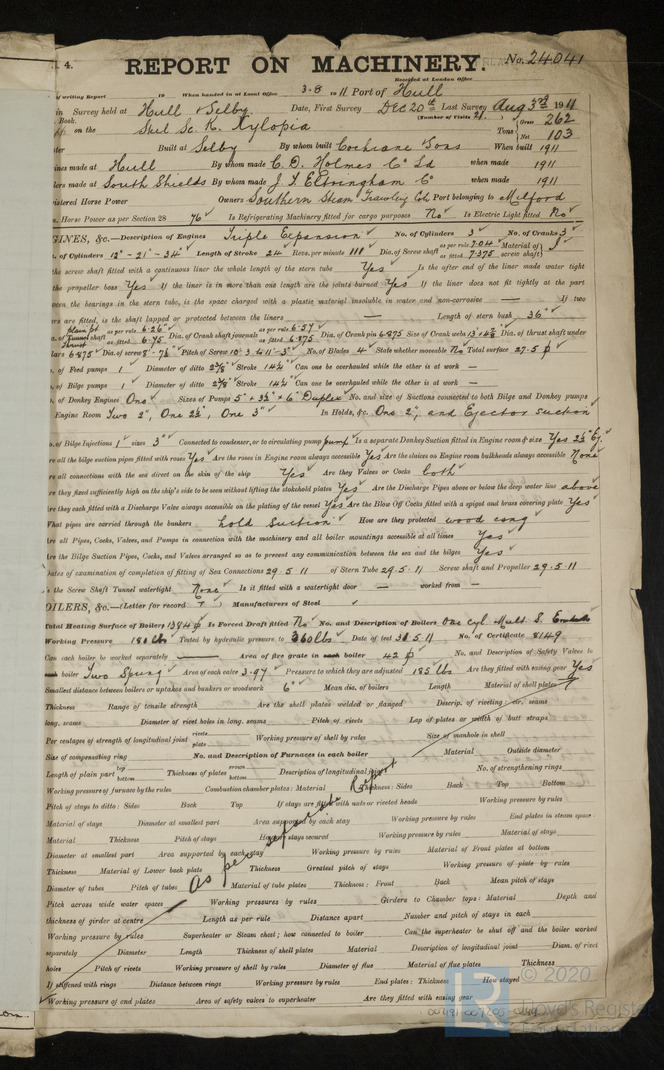 4. REPORT ON MACHINERY. No. 24041
Received at London Office
of writing Report 19 When handed in at Local Office 3.8.19 11 Port of Hull
in Survey held at Hull & Selby Date, First Survey Dec 20th Last Survey Aug 3rd 1911
Book. (Number of Visits 21.
on the Steel Sc. K. Xylopia Tons Gross 262 Net 103
Built at Selby By whom built Cochrane & Sons When built 1911
made at Hull By whom made C. D. Holmes & Co Ld when made 1911
made at South Shields By whom made J. T. Eltringham & Co when made 1911
Horse Power Owners Southern Steam Trawling Co Ld Port belonging to Milford
Horse Power as per Section 28 76 Is Refrigerating Machinery fitted for cargo purposes No Is Electric Light fitted No
GINES, &c.—Description of Engines Triple Expansion No. of Cylinders 3 No. of Cranks 3
of Cylinders 12" - 21" - 34" Length of Stroke 24 Revs. per minute 111 Dia. of Screw shaft as per rule 7.04 as fitted 7.375 Material of screw shaft I
the screw shaft fitted with a continuous liner the whole length of the stern tube Yes Is the after end of the liner made water tight
the propeller boss Yes If the liner is in more than one length are the joints burned Yes If the liner does not fit tightly at the part
the bearings in the stern tube, is the space charged with a plastic material insoluble in water and non-corrosive — If two
are fitted, is the shaft lapped or protected between the liners — Length of stern bush 36"
Tunnel shaft as per rule 6.26" as fitted 6.75 Dia. of Crank shaft journals as per rule 6.57 as fitted 6.875 Dia. of Crank pin 6.875 Size of Crank webs 13" 4 3/8 Dia. of thrust shaft under
6.875 Dia. of screw 8'-7½" Pitch of Screw 10' 3 & 11'-3" No. of Blades 4 State whether moveable No Total surface 27.5
of Feed pumps 1 Diameter of ditto 2 5/8 Stroke 14¼ Can one be overhauled while the other is at work —
of Bilge pumps 1 Diameter of ditto 2 5/8 Stroke 14¼ Can one be overhauled while the other is at work —
of Donkey Engines One Sizes of Pumps 5" + 3½" × 6" Duplex No. and size of Suctions connected to both Bilge and Donkey pumps
Engine Room Two 2", One 2½", One 3" In Holds, &c. One 2", and Ejector suction
of Bilge Injections 1 sizes 3" Connected to condenser, or to circulating pump pump Is a separate Donkey Suction fitted in Engine room & size Yes 2½" Ej.
all the bilge suction pipes fitted with roses Yes Are the roses in Engine room always accessible Yes Are the sluices on Engine room bulkheads always accessible None
all connections with the sea direct on the skin of the ship Yes Are they Valves or Cocks both
they fixed sufficiently high on the ship's side to be seen without lifting the stokehold plates Yes Are the Discharge Pipes above or below the deep water line above
they each fitted with a Discharge Valve always accessible on the plating of the vessel Yes Are the Blow Off Cocks fitted with a spigot and brass covering plate Yes
What pipes are carried through the bunkers hold suction How are they protected wood casing
all Pipes, Cocks, Valves, and Pumps in connection with the machinery and all boiler mountings accessible at all times Yes
the Bilge Suction Pipes, Cocks, and Valves arranged so as to prevent any communication between the sea and the bilges Yes
Dates of examination of completion of fitting of Sea Connections 29.5.11 of Stern Tube 29.5.11 Screw shaft and Propeller 29.5.11
the Screw Shaft Tunnel watertight None Is it fitted with a watertight door — worked from —
OILERS, &c.—(Letter for record T ) Manufacturers of Steel
Total Heating Surface of Boilers 1384 Is Forced Draft fitted No No. and Description of Boilers One cyl Mult S. Ended
Working Pressure 180 lbs Tested by hydraulic pressure to 360 lbs Date of test 30.5.11 No. of Certificate 8149
Can each boiler be worked separately — Area of fire grate in each boiler 42 No. and Description of Safety Valves to
each boiler Two Spring Area of each valve 3.97 Pressure to which they are adjusted 185 lbs Are they fitted with easing gear Yes
Smallest distance between boilers or uptakes and bunkers or woodwork 6" Mean dia. of boilers Length Material of shell plates
Thickness Range of tensile strength Are the shell plates welded or flanged Descrip. of riveting : cir. seams
long. seams Diameter of rivet holes in long. seams Pitch of rivets Lap of plates or width of butt straps
Per centages of strength of longitudinal joint rivets plate Working pressure of shell by rules Size of manhole in shell
Size of compensating ring No. and Description of Furnaces in each boiler Material Outside diameter
Length of plain part top bottom Thickness of plates crown bottom Description of longitudinal joint No. of strengthening rings
Working pressure of furnace by the rules Combustion chamber plates : Material Thickness : Sides Back Top Bottom
Pitch of stays to ditto : Sides Back Top If stays are fitted with nuts or riveted heads Working pressure by rules
Material of stays Diameter at smallest part Area supported by each stay Working pressure by rules End plates in steam space
Material Thickness Pitch of stays How are stays secured Working pressure by rules Material of stays
Diameter at smallest part Area supported by each stay Working pressure by rules Material of Front plates at bottom
Thickness Material of Lower back plate Thickness Greatest pitch of stays Working pressure of plate by rules
Diameter of tubes Pitch of tubes Material of tube plates Thickness : Front Back Mean pitch of stays
As per separate Report
Pitch across wide water spaces Working pressures by rules Girders to Chamber tops : Material Depth and
thickness of girder at centre Length as per rule Distance apart Number and pitch of stays in each
Working pressure by rules Superheater or Steam chest; how connected to boiler Can the superheater be shut off and the boiler worked
separately Diameter Length Thickness of shell plates Material Description of longitudinal joint Diam. of rivet
holes Pitch of rivets Working pressure of shell by rules Diameter of flue Material of flue plates Thickness
If stiffened with rings Distance between rings Working pressure by rules End plates : Thickness How stayed
Working pressure of end plates Area of safety valves to superheater Are they fitted with easing gear
© 2020
Lloyd's Register
Foundation